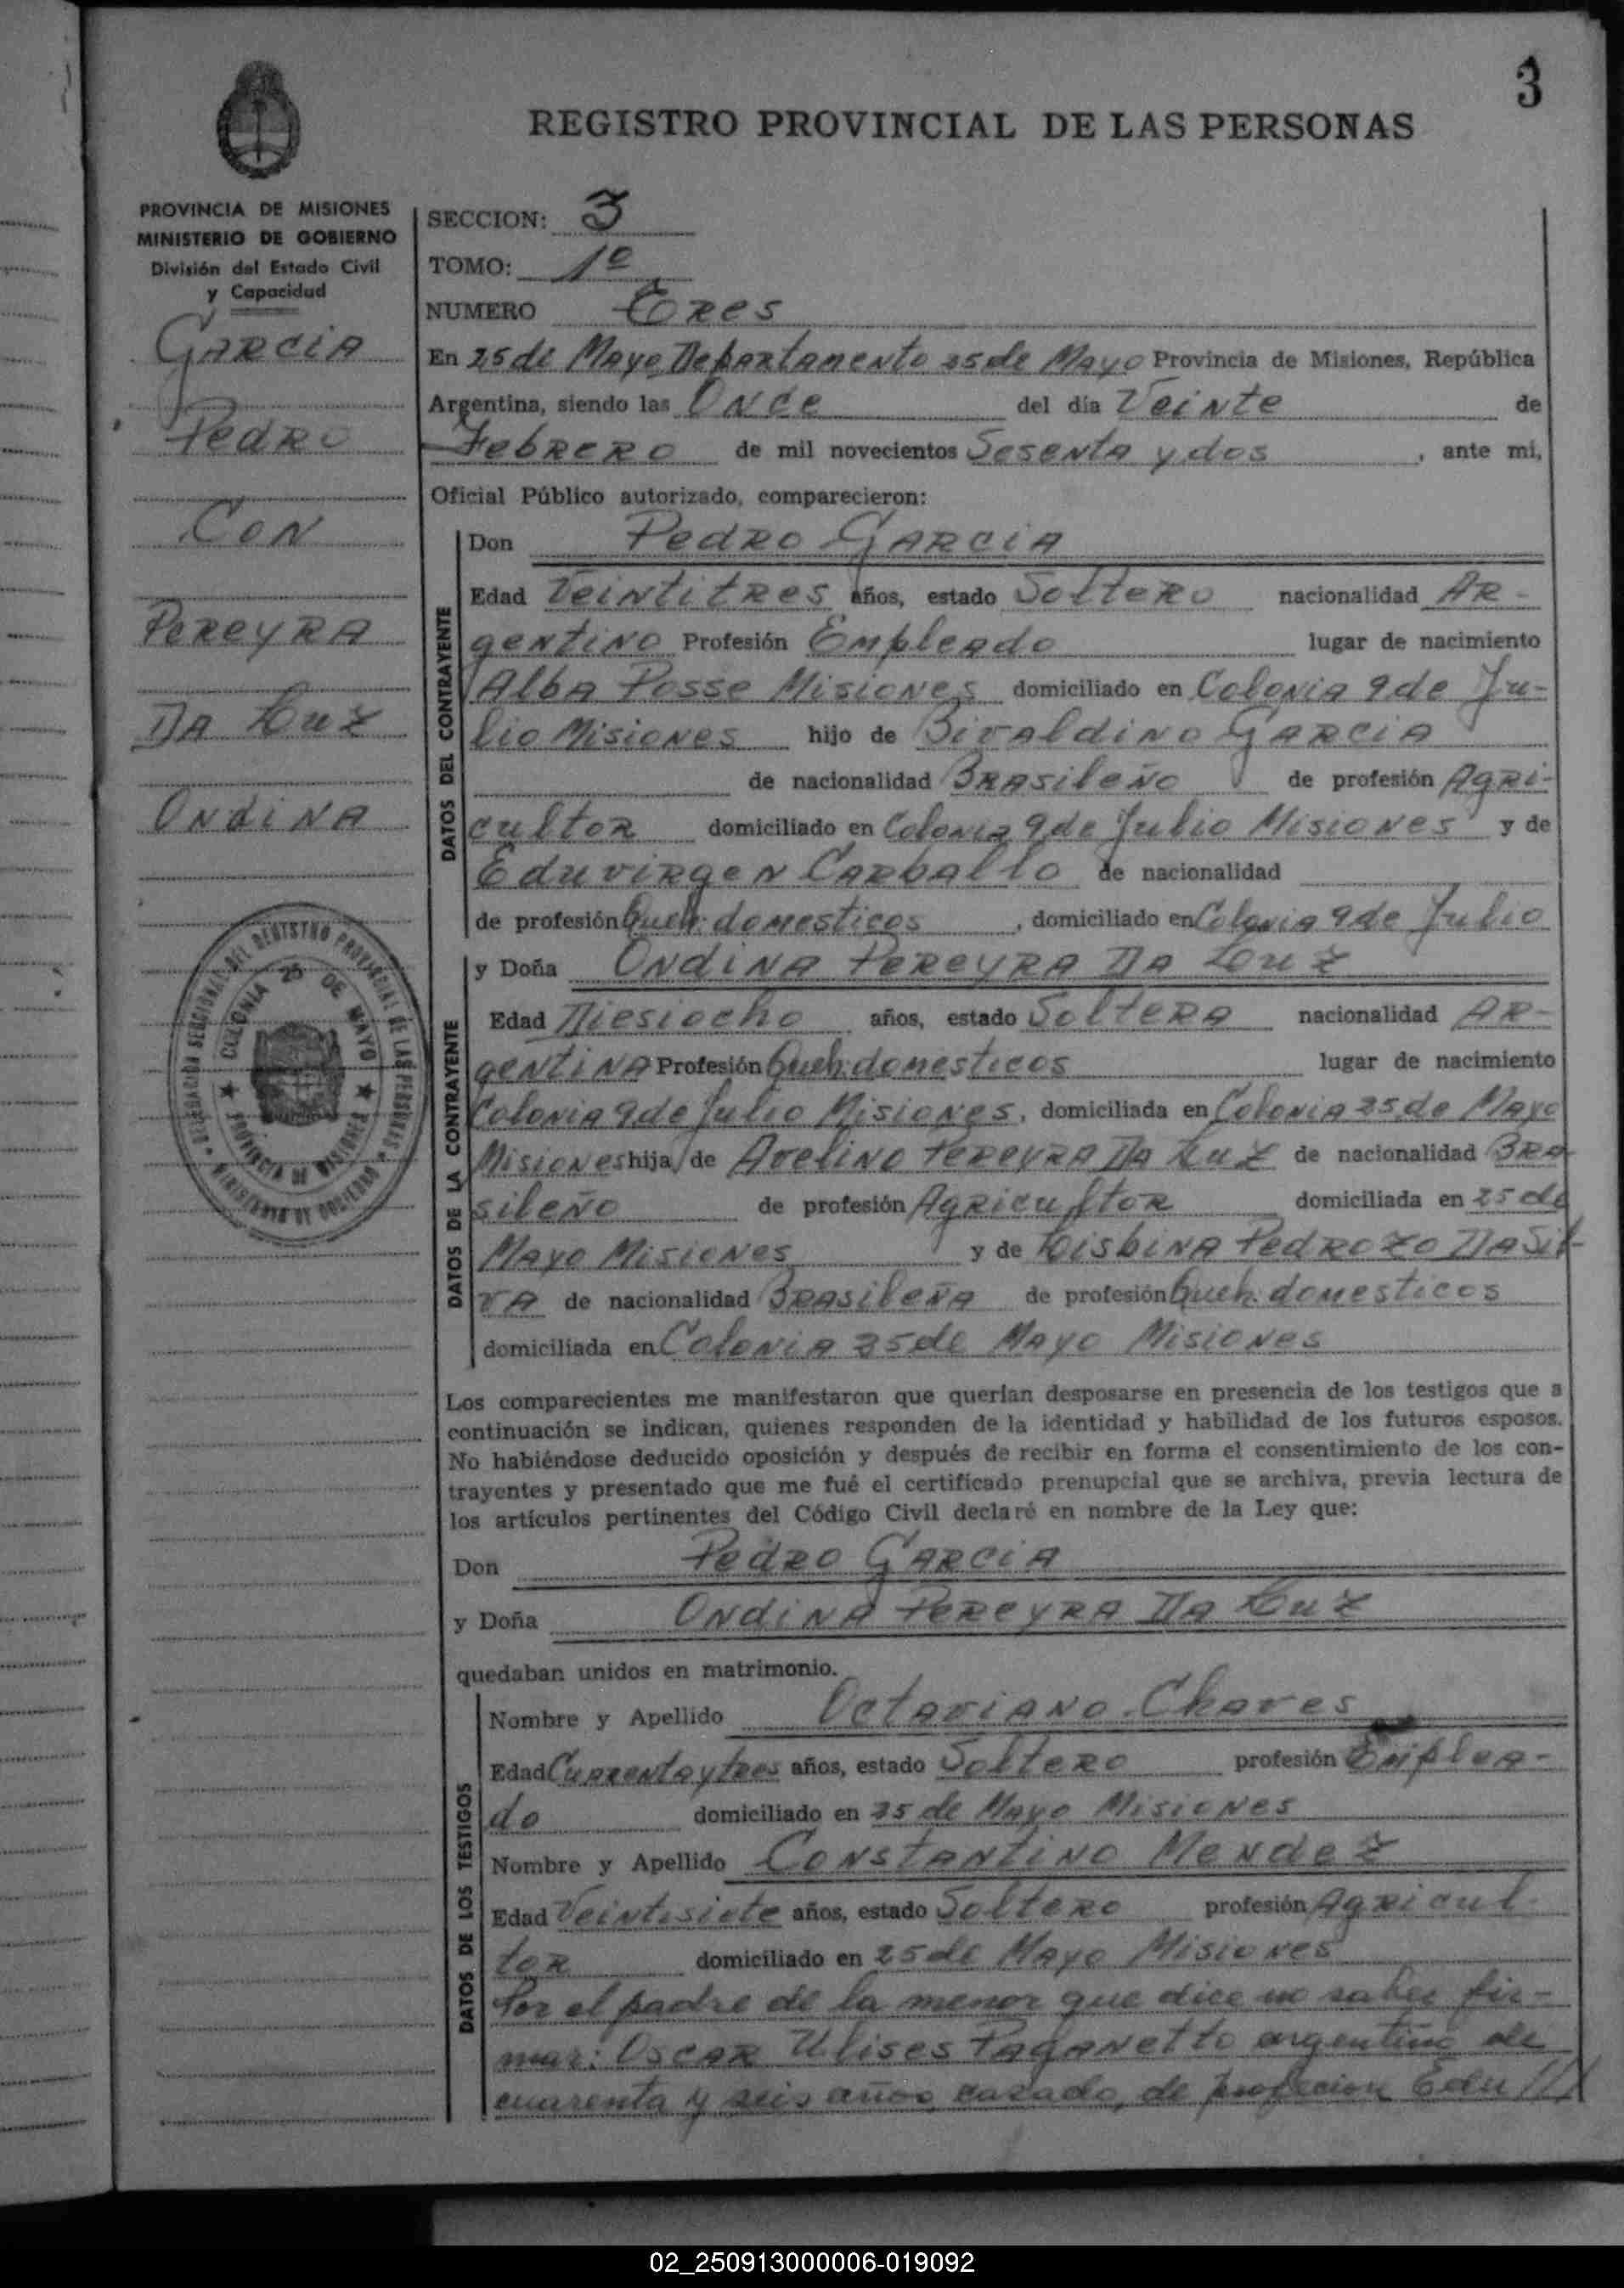 3
REGISTRO PROVINCIAL DE LAS PERSONAS
PROVINCIA DE MISIONES
MINISTERIO DE GOBIERNO
División del Estado Civil
y Capacidad
GARCIA
Pedro
CON
PEREYRA
DA LUZ
ONDINA
DELEGACIÓN SECCIONAL DEL REGISTRO PROVINCIAL DE LAS PERSONAS
COLONIA 25 DE MAYO
PROVINCIA DE MISIONES
MINISTERIO DE GOBIERNO
SECCION: 3
TOMO: 1º
NUMERO Tres
En 25 de Mayo Departamento 25 de Mayo Provincia de Misiones, República
Argentina, siendo las Once del día Veinte de
Febrero de mil novecientos Sesenta y dos, ante mi,
Oficial Público autorizado, comparecieron:
DATOS DEL CONTRAYENTE
Don Pedro GARCIA
Edad Veintitres años, estado Soltero nacionalidad AR-
gentino Profesión Empleado lugar de nacimiento
Alba Posse Misiones domiciliado en Colonia 9 de Ju-
lio Misiones hijo de Bivaldino GARCIA
de nacionalidad Brasileño de profesión Agri-
cultor domiciliado en Colonia 9 de Julio Misiones y de
Eduvirgen Carballo de nacionalidad
de profesión Queh. domesticos, domiciliado en Colonia 9 de Julio
DATOS DE LA CONTRAYENTE
y Doña ONDINA PEREYRA DA LUZ
Edad Diesiocho años, estado Soltera nacionalidad AR-
gentina Profesión Queh. domesticos lugar de nacimiento
Colonia 9 de Julio Misiones, domiciliada en Colonia 25 de Mayo
Misiones hija de Avelino PEREYRA DA LUZ de nacionalidad Bra
sileño de profesión Agricultor domiciliada en 25 de
Mayo Misiones y de Pedrozo DA Sil-
va de nacionalidad Brasileña de profesión Queh. domesticos
domiciliada en Colonia 25 de Mayo Misiones
Los comparecientes me manifestaron que querían desposarse en presencia de los testigos que a
continuación se indican, quienes responden de la identidad y habilidad de los futuros esposos.
No habiéndose deducido oposición y después de recibir en forma el consentimiento de los con-
trayentes y presentado que me fué el certificado prenupcial que se archiva, previa lectura de
los artículos pertinentes del Código Civil declaré en nombre de la Ley que:
Don Pedro GARCIA
y Doña ONDINA PEREYRA DA LUZ
quedaban unidos en matrimonio.
DATOS DE LOS TESTIGOS
Nombre y Apellido Octaviano Chaves
Edad Cuarenta y tres años, estado Soltero profesión Emplea-
do domiciliado en 25 de Mayo Misiones
Nombre y Apellido Constantino Mendez
Edad Veintisiete años, estado Soltero profesión Agricul
tor domiciliado en 25 de Mayo Misiones
Por el padre de la menor que dice no saber fir-
mar: Oscar Ulises Paganetto argentino de
cuarenta y seis años casado, de profecion Edu ///
02_250913000006-019092